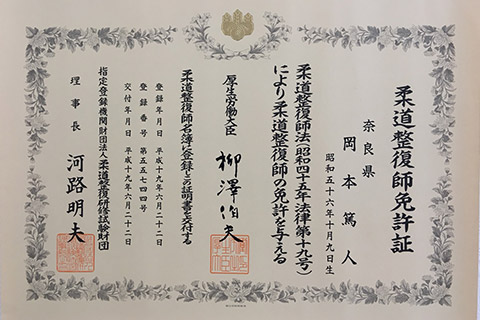 柔道整復師免許証
奈良県
岡本篤人
昭和五十六年十月九日生
柔道整復師法(昭和四十五年法律第十九号)
により柔道整復師の免許を与える
厚生労働大臣 柳澤伯夫
柔道整復師名簿に登録しこの証明書を交付する
登録年月日 平成十九年六月二十二日
登録番号 第五五七四四号
交付年月日 平成十九年六月二十二日
指定登録機関財団法人柔道整復研修試験財団
理事長 河路明夫